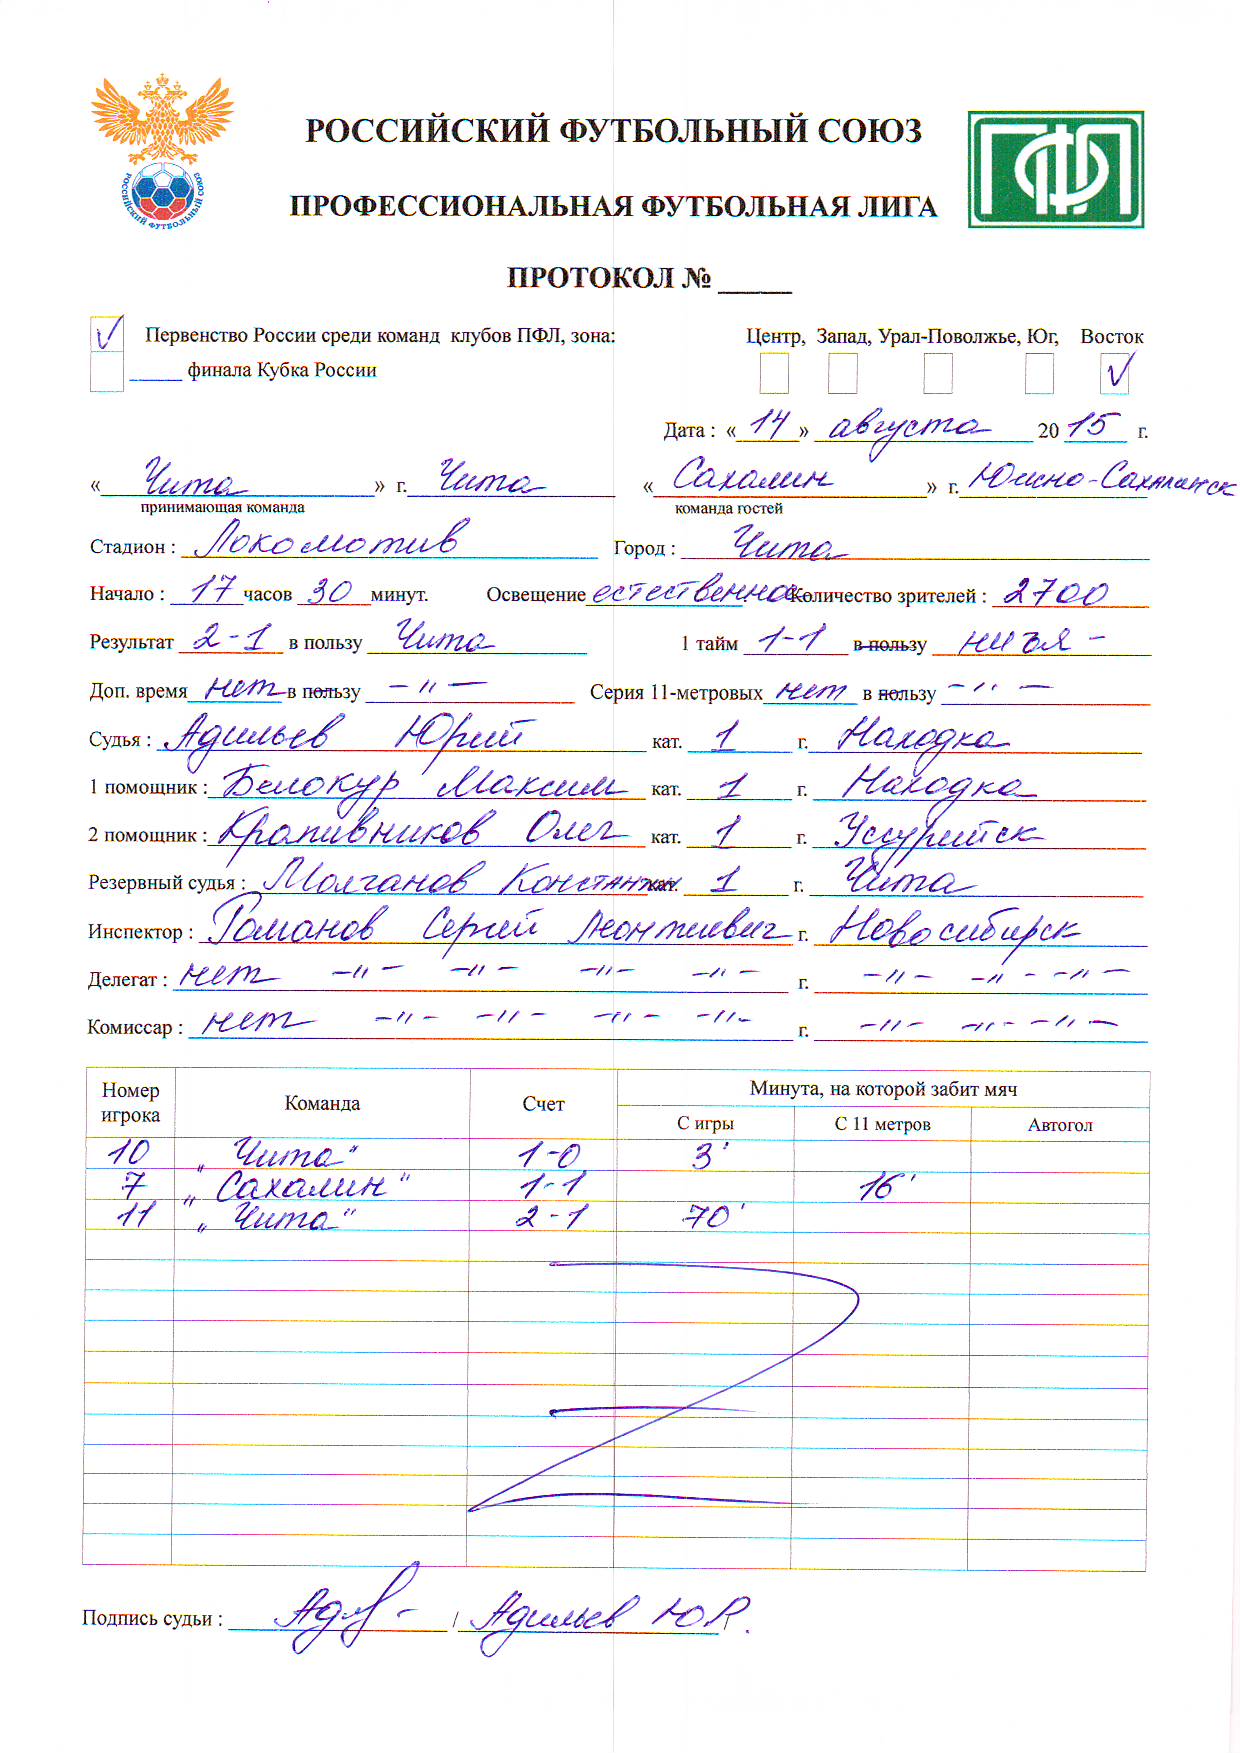 РОССИЙСКИЙ ФУТБОЛЬНЫЙ СОЮЗ
РОССИЙСКИЙ ФУТБОЛЬНЫЙ СОЮЗ
ПФЛ
ПРОФЕССИОНАЛЬНАЯ ФУТБОЛЬНАЯ ЛИГА
ПРОТОКОЛ № _____
V Первенство России среди команд клубов ПФЛ, зона: Центр, Запад, Урал-Поволжье, Юг, Восток
_____ финала Кубка России V
Дата : «14» августа 2015 г.
«Чита» г. Чита «Сахалин» г. Южно-Сахалинск
принимающая команда команда гостей
Стадион : Локомотив Город : Чита
Начало : 17 часов 30 минут. Освещение естественное Количество зрителей : 2700
Результат 2-1 в пользу Чита 1 тайм 1-1 в пользу ничья -
Доп. время нет в пользу - " - Серия 11-метровых нет в пользу - " -
Судья : Адильев Юрий кат. 1 г. Находка
1 помощник : Белокур Максим кат. 1 г. Находка
2 помощник : Крапивников Олег кат. 1 г. Уссурийск
Резервный судья : Молганов Константин кат. 1 г. Чита
Инспектор : Романов Сергей Леонтиевич г. Новосибирск
Делегат : нет -"- -"- -"- -"- г. -"- -"- -"-
Комиссар : нет -"- -"- -"- -"- г. -"- -"- -"-
Номер игрока Команда Счет Минута, на которой забит мяч
С игры С 11 метров Автогол
10 „Чита" 1-0 3'
7 „Сахалин" 1-1 16'
11 „Чита" 2-1 70'
Подпись судьи : / Адильев Ю.Р.